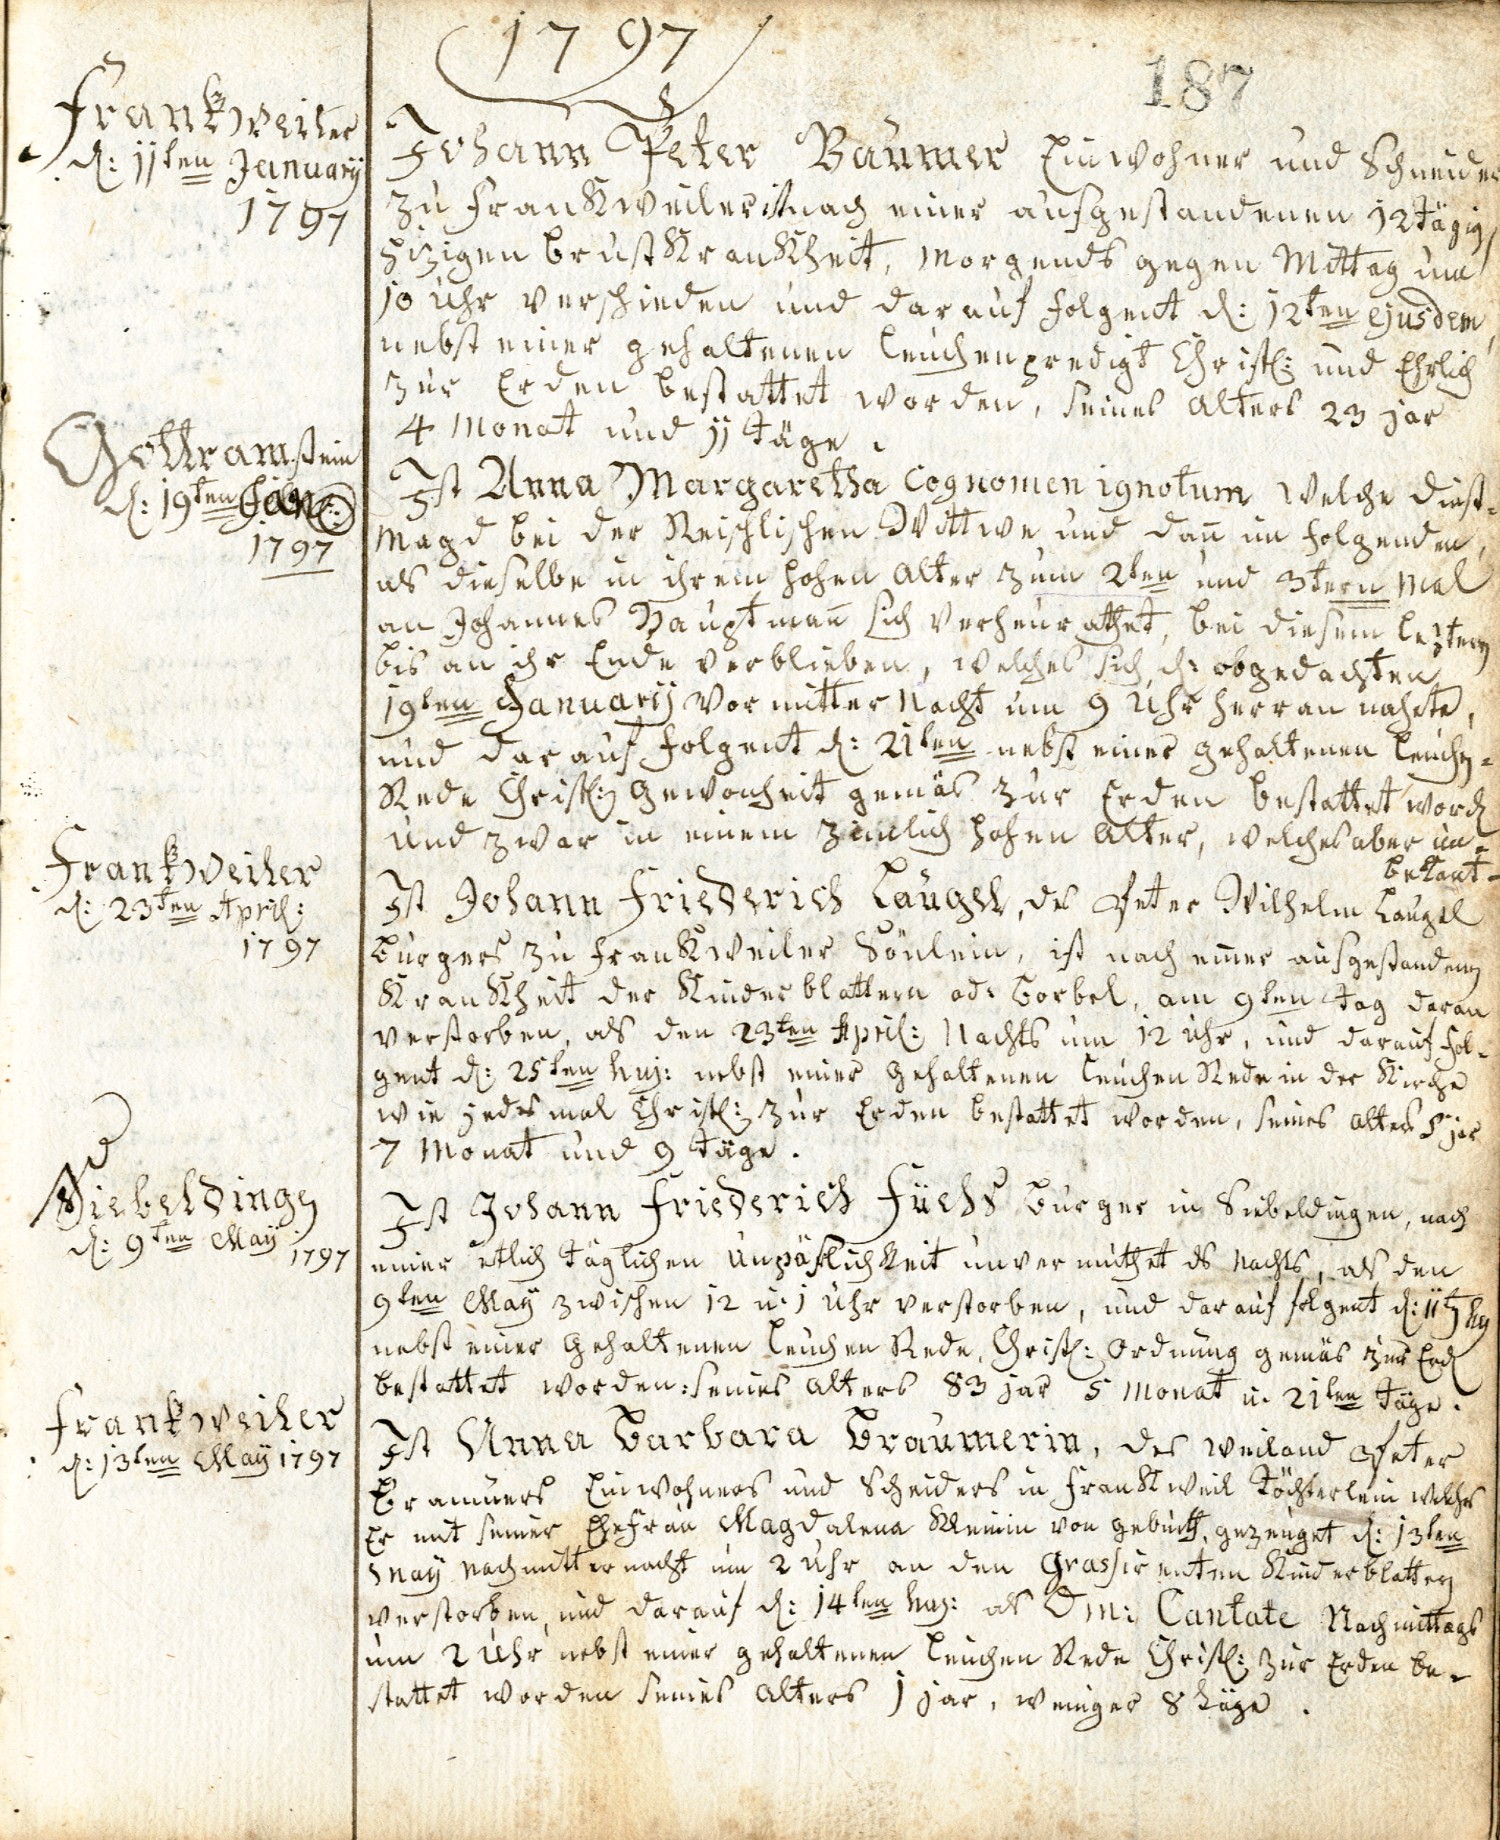 1797
187
Frankweiler
d: 11ten January
1797
Johann Peter Baumer Einwohner und Schneider
zu Frankweiler ist nach einer ausgestandenen 12tägig
hizigen brustkrankheit, Morgends gegen Mittag um
10 Uhr verschieden und darauf folgent d: 12ten ejusdem,
nebst einer gehaltenen Leichenpredigt Christl: und Ehrlich
zur Erden bestattet worden, seines Alters 23 jar
4 Monat und 11 täge.
Gottramstein
d: 19ten Jan:
1797
Ist Anna Margaretha Cognomen ignotum welche dienst-
Magd bei der Reischlischen Wittwe und dan im folgenden,
als dieselbe in ihrem hohen Alter zum 2ten und 3tern Mal
an Johannes Hauptman sich verheurathet, bei diesem leztern
bis an ihr Ende verblieben, welches sich d: obgedachten
19ten January vor mitter Nacht um 9 Uhr herran nahete,
und darauf folgent d: 21ten nebst einer gehaltenen Leichen-
Rede Christl: Gewonheit gemäs zur Erden bestattet word
und zwar in einem zimlich hohen Alter, welches aber un-
bekant-
Frankweiler
d: 23ten April:
1797
Ist Johann Friederich Laugel, des Peter Wilhelm Laugel
burgers zu Frankweiler Sönlein, ist nach einer ausgestanden
Krankheit der Kinderblattern od: borbel, am 9ten tag daran
verstorben, als den 23ten April: Nachts um 12 Uhr, und darauf fol-
gent d: 25ten huj: nebst einer gehaltenen Leichen Rede in der Kirche
wie jedes mal Christl: zur Erden bestattet worden, seines alters 5 jar
7 Monat und 9 täge.
Siebeldingen
d: 9ten May
1797
Ist Johann Friederich Füchs burger in Siebeldingen, nach
einer etlich täglichen Unpäslichkeit unvermuthet des Nachts, als den
9ten May zwischen 12 u: 1 Uhr verstorben, und darauf folgent d: 11t huj
nebst einer gehaltenen Leichen Rede, Christl: Ordnung gemäs zur Erd
bestattet worden: seines Alters 83 jar 5 Monat u. 21ten täge.
Frankweiler
d: 13ten May 1797
Ist Anna Barbara Braumerin, des weiland Peter
Braumers Einwohners und Schneiders in Frankweil Töchterlein welches
Er mit seiner Ehefrau Magdalena Kleinin von geburth, gezeuget d: 13ten
May nach mitternacht um 2 Uhr an den Grassirenten Kinderblattern
verstorben, und darauf d: 14ten huj: als Dm: Cantate Nachmittags
um 2 Uhr nebst einer gehaltenen Leichen Rede Christl: zur Erden be-
stattet worden seines Alters 1 jar, weniger 8 täge.